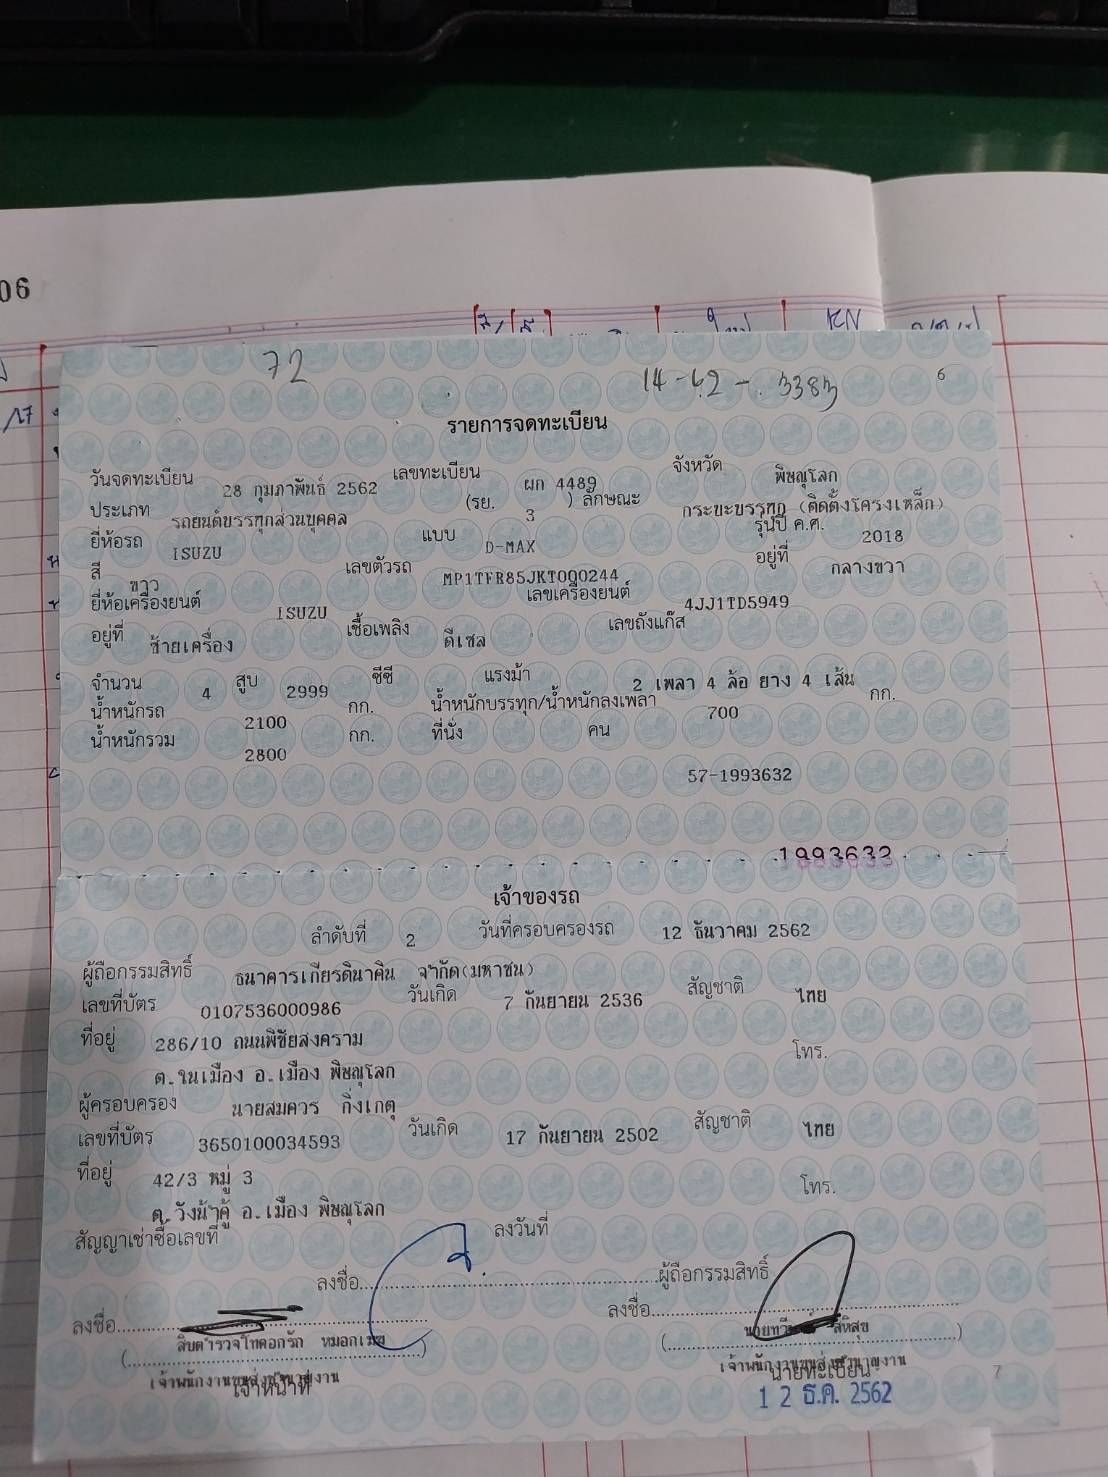 06
72
14-62-3383
6
รายการจดทะเบียน
วันจดทะเบียน 28 กุมภาพันธ์ 2562 เลขทะเบียน ผก 4489 จังหวัด พิษณุโลก
ประเภท รถยนต์บรรทุกส่วนบุคคล (รย. 3 ) ลักษณะ กระบะบรรทุก (ติดตั้งโครงเหล็ก)
ยี่ห้อรถ ISUZU แบบ D-MAX รุ่นปี ค.ศ. 2018
สี ขาว เลขตัวรถ MP1TFR85JKT000244 อยู่ที่ กลางขวา
ยี่ห้อเครื่องยนต์ ISUZU เลขเครื่องยนต์ 4JJ1TD5949
อยู่ที่ ซ้ายเครื่อง เชื้อเพลิง ดีเซล เลขถังแก๊ส
จำนวน 4 สูบ 2999 ซีซี แรงม้า 2 เพลา 4 ล้อ ยาง 4 เส้น
น้ำหนักรถ 2100 กก. น้ำหนักบรรทุก/น้ำหนักลงเพลา 700 กก.
น้ำหนักรวม 2800 กก. ที่นั่ง คน
57-1993632
1993632
เจ้าของรถ
ลำดับที่ 2 วันที่ครอบครองรถ 12 ธันวาคม 2562
ผู้ถือกรรมสิทธิ์ ธนาคารเกียรตินาคิน จำกัด(มหาชน)
เลขที่บัตร 0107536000986 วันเกิด 7 กันยายน 2536 สัญชาติ ไทย
ที่อยู่ 286/10 ถนนพิชัยสงคราม โทร.
ต.ในเมือง อ.เมือง พิษณุโลก
ผู้ครอบครอง นายสมควร กิ่งเกตุ
เลขที่บัตร 3650100034593 วันเกิด 17 กันยายน 2502 สัญชาติ ไทย
ที่อยู่ 42/3 หมู่ 3 โทร.
ต.วังน้ำคู้ อ.เมือง พิษณุโลก
สัญญาเช่าซื้อเลขที่ ลงวันที่
ลงชื่อ ผู้ถือกรรมสิทธิ์
ลงชื่อ ลงชื่อ
สิบตำรวจโทดอกรัก หมอกเมฆ
เจ้าพนักงานขนส่งชำนาญงาน เจ้าพนักงานขนส่งชำนาญงาน
เจ้าหน้าที่ นายทะเบียน
12 ธ.ค. 2562
7